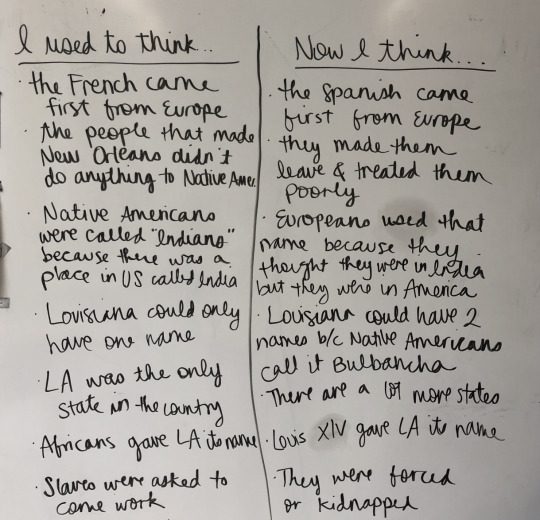 I used to think...
· the French came
first from Europe
· the people that made
New Orleans didn't
do anything to Native Amer.
· Native Americans
were called "Indians"
because there was a
place in US called India
· Louisiana could only
have one name
· LA was the only
state in the country
· Africans gave LA its name
· Slaves were asked to
come work
Now I think...
· the Spanish came
first from Europe
· they made them
leave & treated them
poorly
· Europeans used that
name because they
thought they were in India
but they were in America
· Louisiana could have 2
names b/c Native Americans
call it Bulbancha
· There are a lot more states
· Louis XIV gave LA its name
· They were forced
or kidnapped